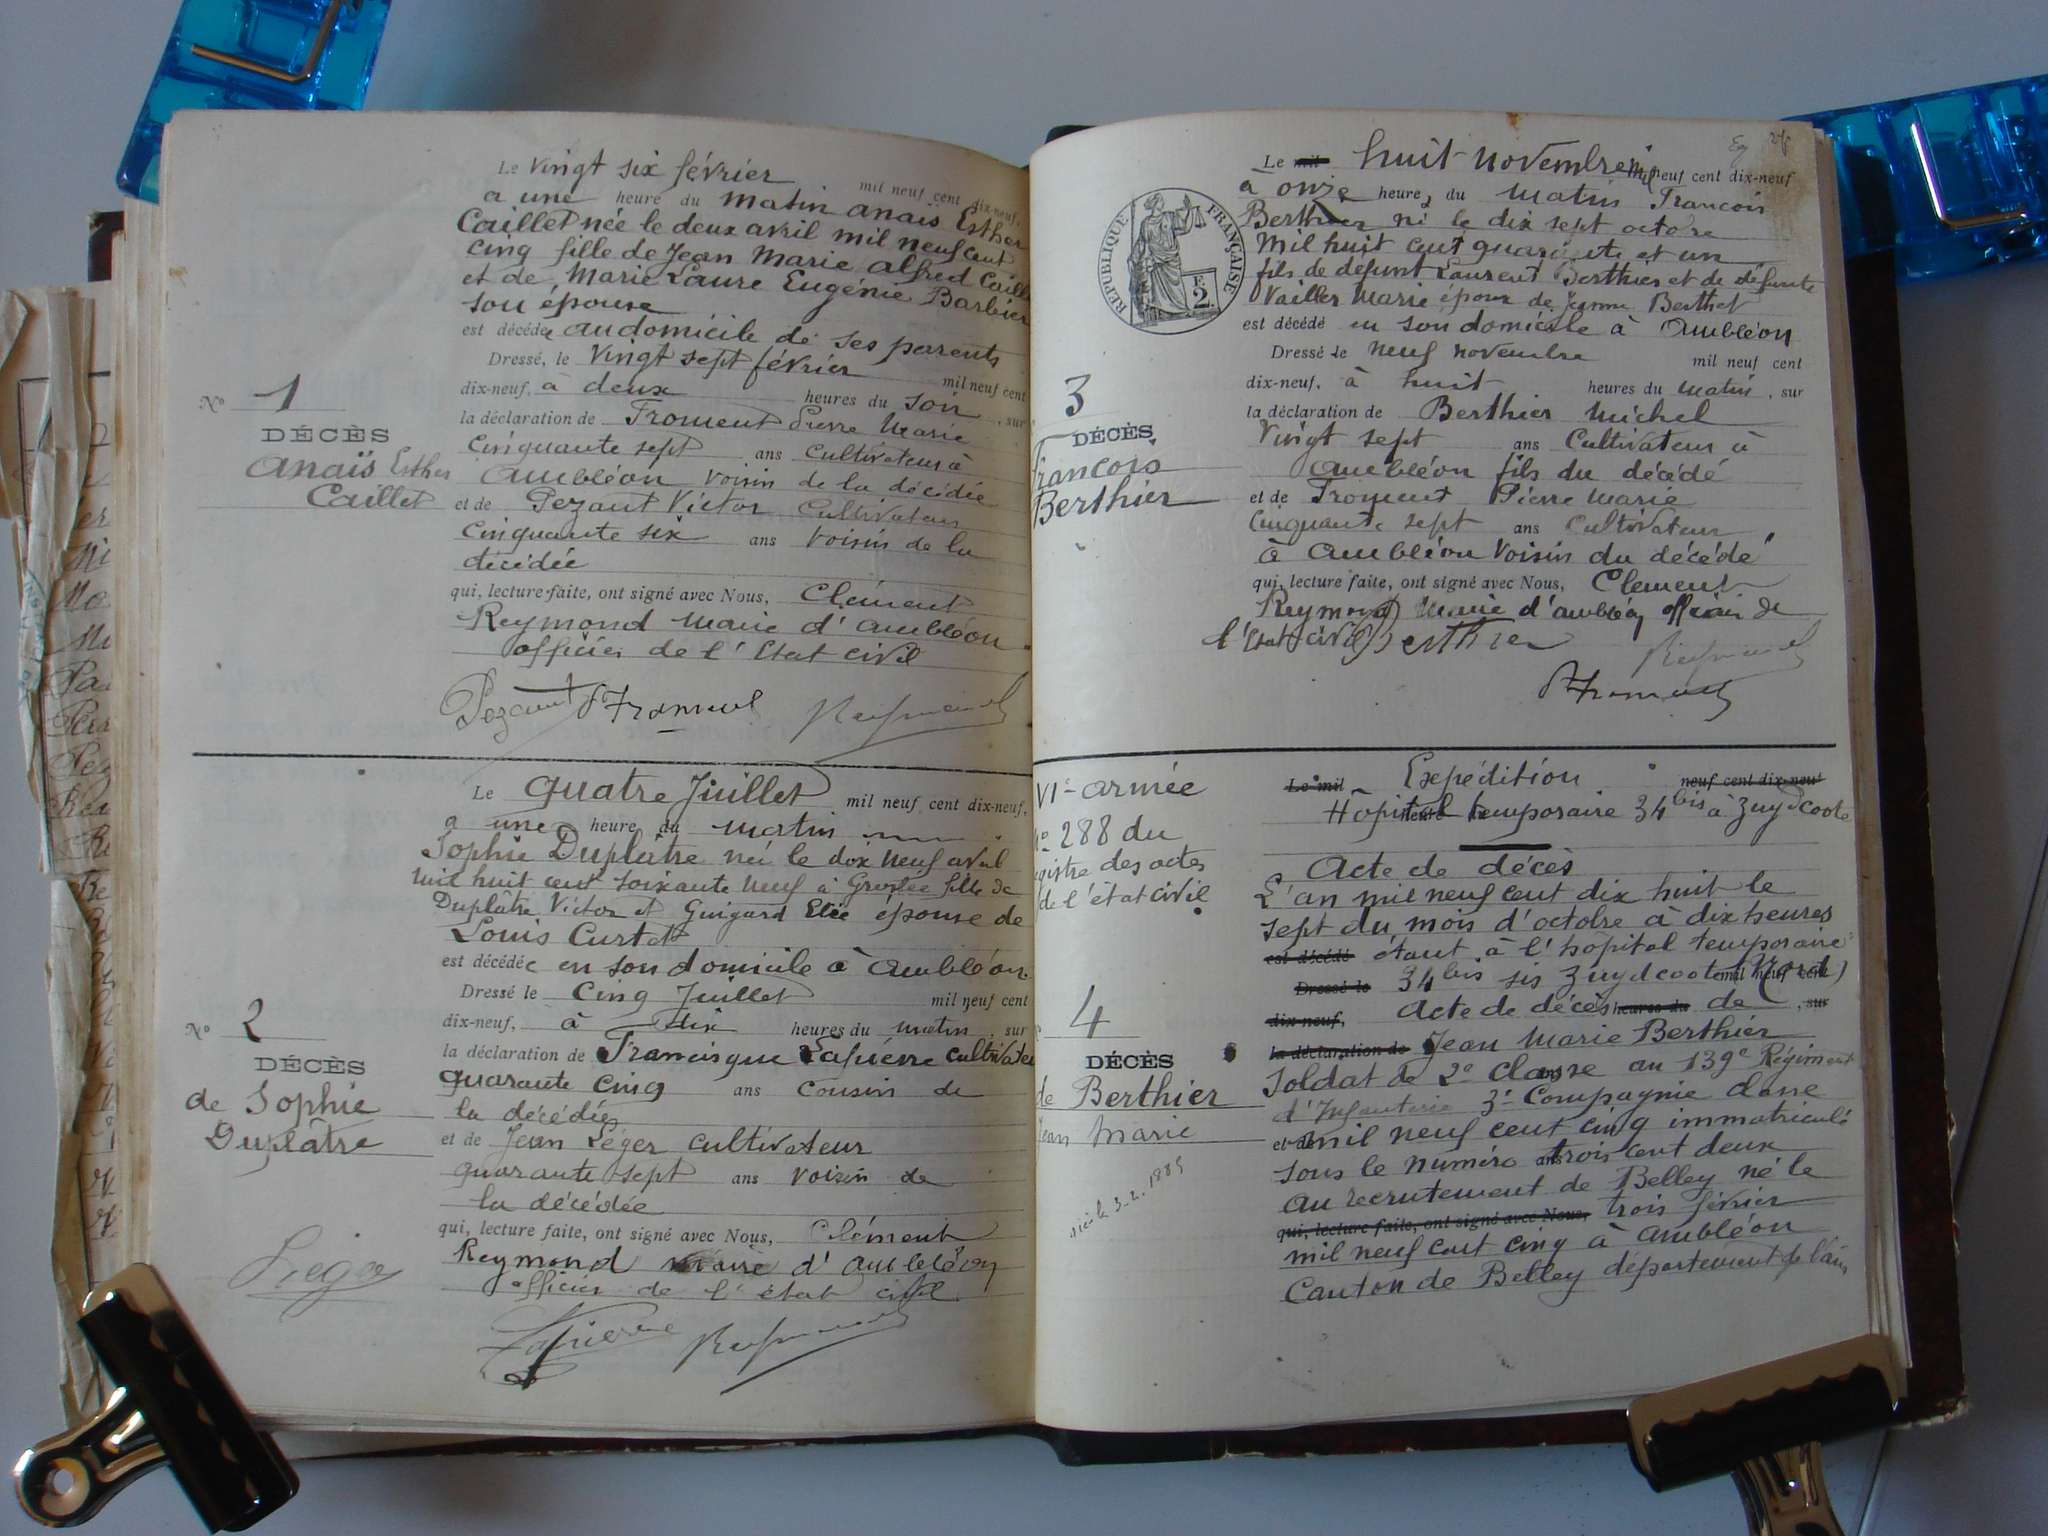 Le vingt six février mil neuf cent dix-neuf,
a une heure du matin anaïs Esther
Caillet née le deux avril mil neuf cent
cinq fille de Jean Marie alfred Caill
et de Marie Laure Eugénie Barbier
son épouse
est décédée au domicile de ses parents
Dressé, le vingt sept février mil neuf cent
dix-neuf, à deux heures du soir, sur
la déclaration de Froment Pierre Marie
cinquante sept ans cultivateur à
ambléon voisin de la décédée
et de Pezant Victor Cultivateur
cinquante six ans voisin de la
décédée
qui, lecture faite, ont signé avec Nous, Clément
Reymond Maire d'ambléon
officier de l'Etat civil
Pezant P Froment Reymond
No 1
DÉCÈS
Anaïs Esther
Caillet
Le quatre Juillet mil neuf cent dix-neuf,
a une heure du matin
Sophie Duplatre née le dix neuf avril
mil huit cent soixante neuf à Groslée fille de
Duplâtre Victor et Guigard épouse de
Louis Curtet
est décédée en son domicile à ambléon
Dressé le cinq Juillet mil neuf cent
dix-neuf, à dix heures du matin, sur
la déclaration de Francisque Lapierre cultivateu
quarante cinq ans cousin de
la décédée
et de Jean Léger cultivateur
quarante sept ans voisin de
la décédée
qui, lecture faite, ont signé avec Nous, Clément
Reymond maire d'ambléon
officier de l'état civil
Lapierre Reymond
No 2
DÉCÈS
de Sophie
Duplâtre
Léger
Le mil huit novembre mil neuf cent dix-neuf
à onze heures du matin Francois
Berthier né le dix sept octobre
mil huit cent quarante et un
fils de défunt Laurent Berthier et de défunte
Vailler Marie époux de Jeanne Berthet
est décédé en son domicile à ambléon
Dressé le neuf novembre mil neuf cent
dix-neuf, à huit heures du matin, sur
la déclaration de Berthier Michel
Vingt sept ans Cultivateur à
ambléon fils du décédé
et de Froment Pierre Marie
cinquante sept ans cultivateur
à ambléon voisin du décédé
qui, lecture faite, ont signé avec Nous, Clement
Reymond Maire d'ambléon officier de
l'Etat civil Berthier
Reymond
P Froment
RÉPUBLIQUE FRANÇAISE
2
3
DÉCÈS
François
Berthier
Le mil Expédition neuf cent dix-neuf
Hôpital temporaire 34 bis à Zuydcoote
Acte de décès
L'an mil neuf cent dix huit le
sept du mois d'octobre à dix heures
est décédé étant à l'hôpital temporaire
Dressé le 34 bis sis Zuydcoote mil neuf cent (Nord)
dix-neuf, Acte de décès heures du de, sur
la déclaration de Jean Marie Berthier
Soldat de 2e classe au 139e Régiment
d'Infanterie 3e Compagnie classe
et de mil neuf cent cinq immatriculé
sous le numéro ans trois cent deux
au recrutement de Belley né le
qui, lecture faite, ont signé avec Nous, trois février
mil neuf cent cinq à ambléon
Canton de Belley département de l'ain
VIe armée
No 288 du
gistre des actes
de l'état civil
4
DÉCÈS
de Berthier
Jean Marie
3-2-1885